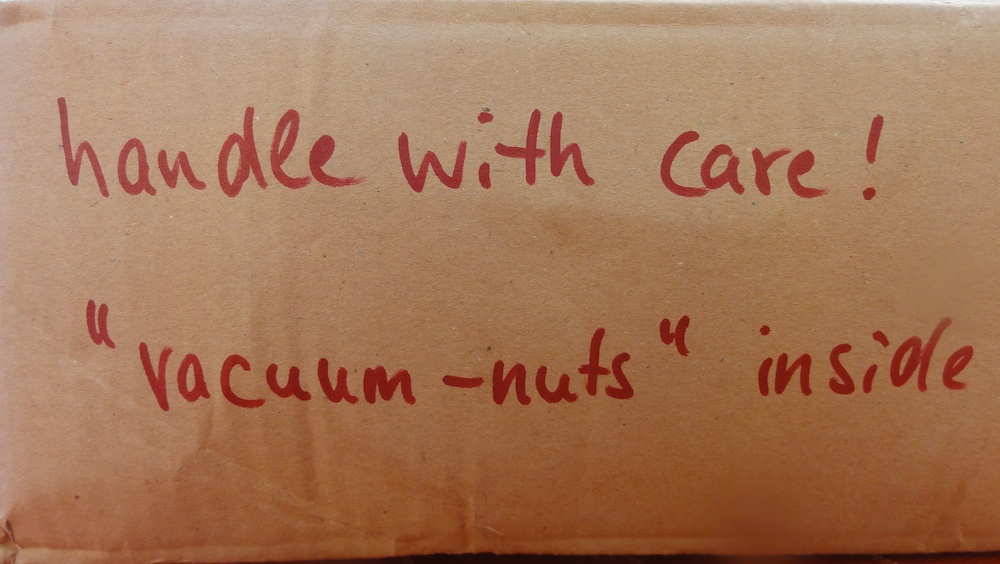 handle with care!
"vacuum-nuts" inside